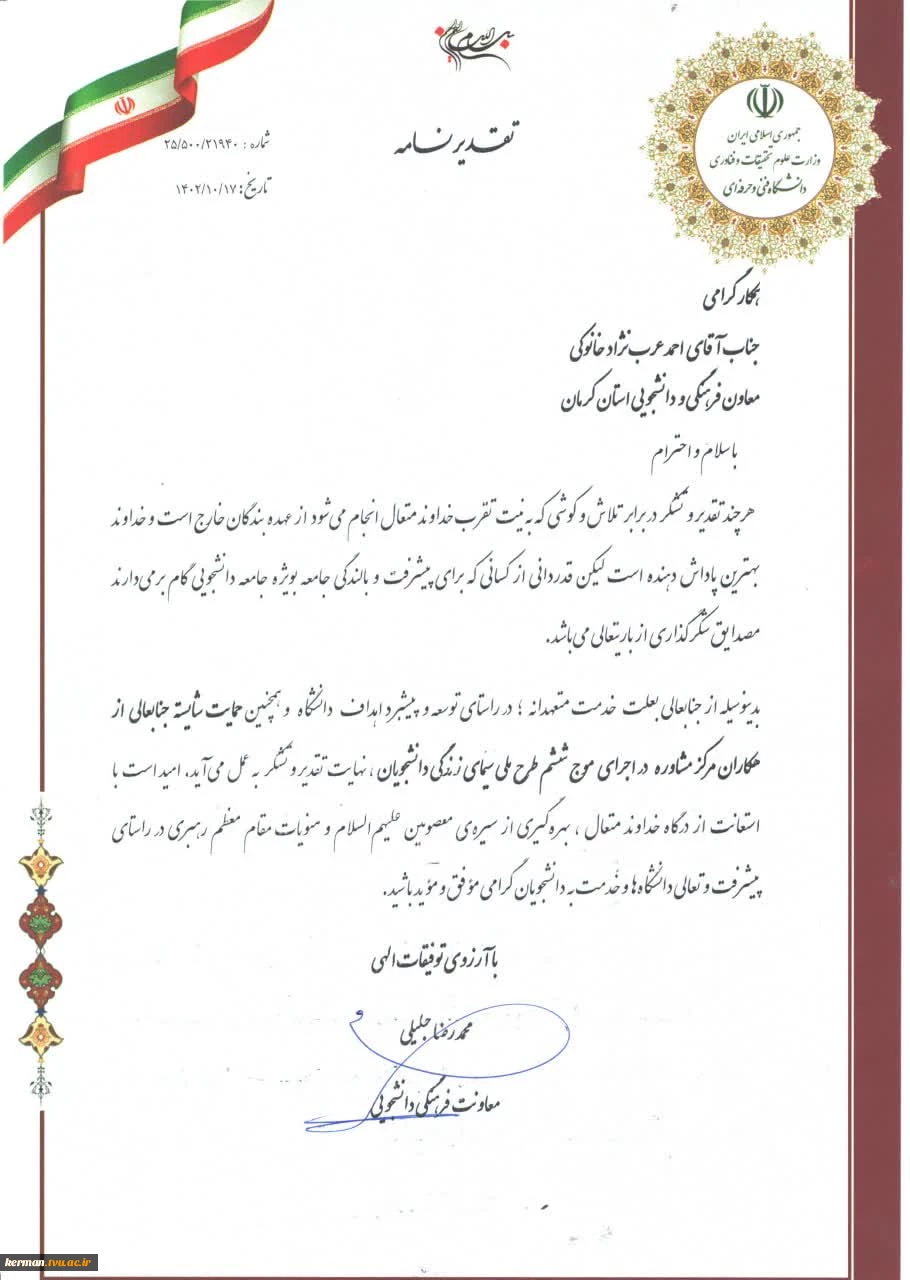 بسم الله الرحمن الرحیم
جمهوری اسلامی ایران
وزارت علوم تحقیقات و فناوری
دانشگاه فنی و حرفه‌ای
تقدیرنامه
شماره : ۲۵/۵۰۰/۲۱۹۴۰
تاریخ: ۱۴۰۲/۱۰/۱۷
همکار گرامی
جناب آقای احمد عرب نژاد خانوکی
معاون فرهنگی و دانشجویی استان کرمان
با سلام و احترام
هر چند تقدیر و تشکر در برابر تلاش و کوششی که به نیت تقرب خداوند متعال انجام می‌شود از عهده بندگان خارج است و خداوند
بهترین پاداش دهنده است لیکن قدردانی از کسانی که برای پیشرفت و بالندگی جامعه بویژه جامعه دانشجویی گام برمی‌دارند
مصدایق شکرگذاری از باریتعالی می‌باشد.
بدینوسیله از جنابعالی بعلت خدمت متعهدانه ؛ در راستای توسعه و پیشبرد اهداف دانشگاه و همچنین حمایت شایسته جنابعالی از
همکاران مرکز مشاوره در اجرای موج ششم طرح ملی سیمای زندگی دانشجویان ، نهایت تقدیر و تشکر به عمل می‌آید. امید است با
استعانت از درگاه خداوند متعال ، بهره‌گیری از سیره‌ی معصومین علیهم السلام و منویات مقام معظم رهبری در راستای
پیشرفت و تعالی دانشگاه‌ها و خدمت به دانشجویان گرامی مؤفق و مؤید باشید.
با آرزوی توفیقات الهی
محمدرضا جلیلی
معاونت فرهنگی دانشجویی
kerman.tvu.ac.ir